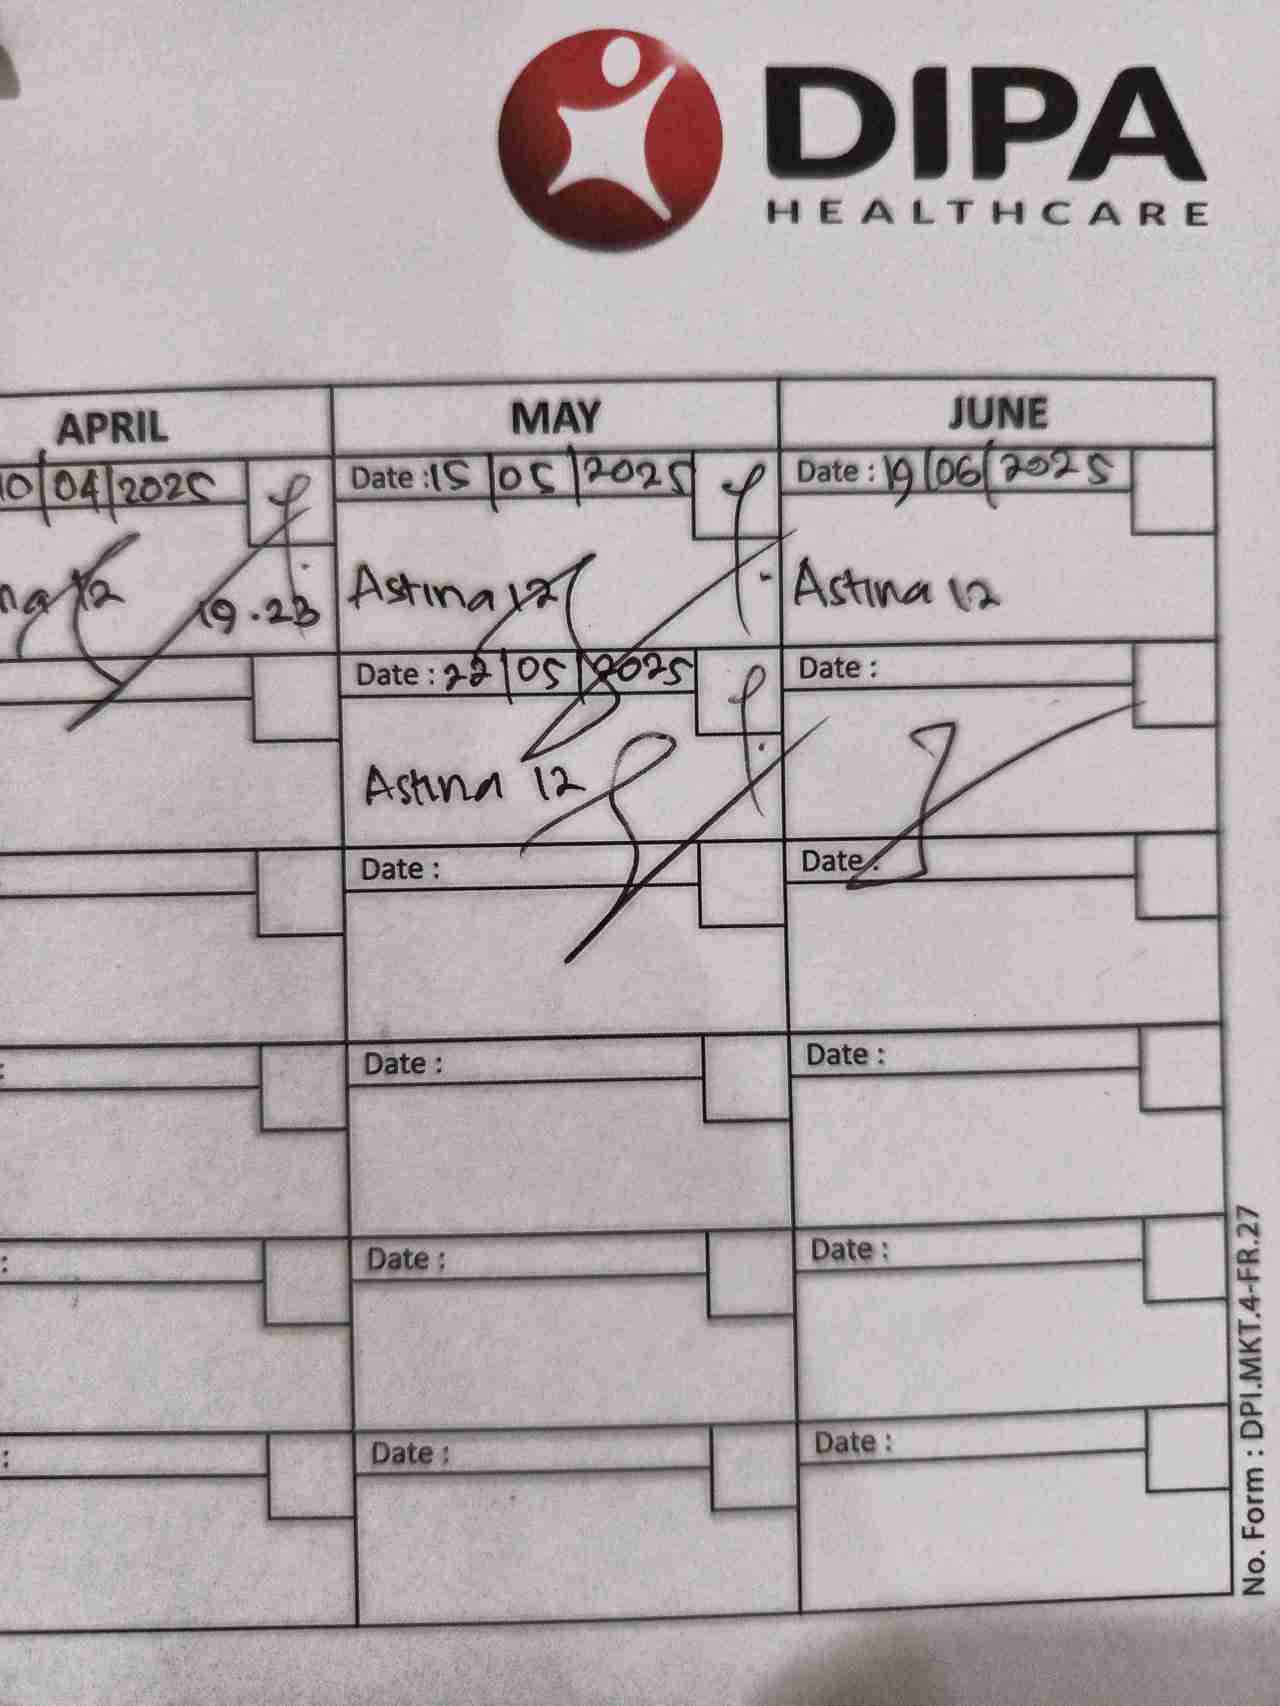 DIPA
HEALTHCARE
APRIL
MAY
JUNE
10/04/2025
Date : 15/05/2025
Date : 19/06/2025
12
19.23
Astina 12
Astina 12
Date : 22/05/2025
Date :
Astina 12
Date :
Date :
Date :
Date :
Date :
Date :
Date :
Date :
No. Form : DPI.MKT.4-FR.27